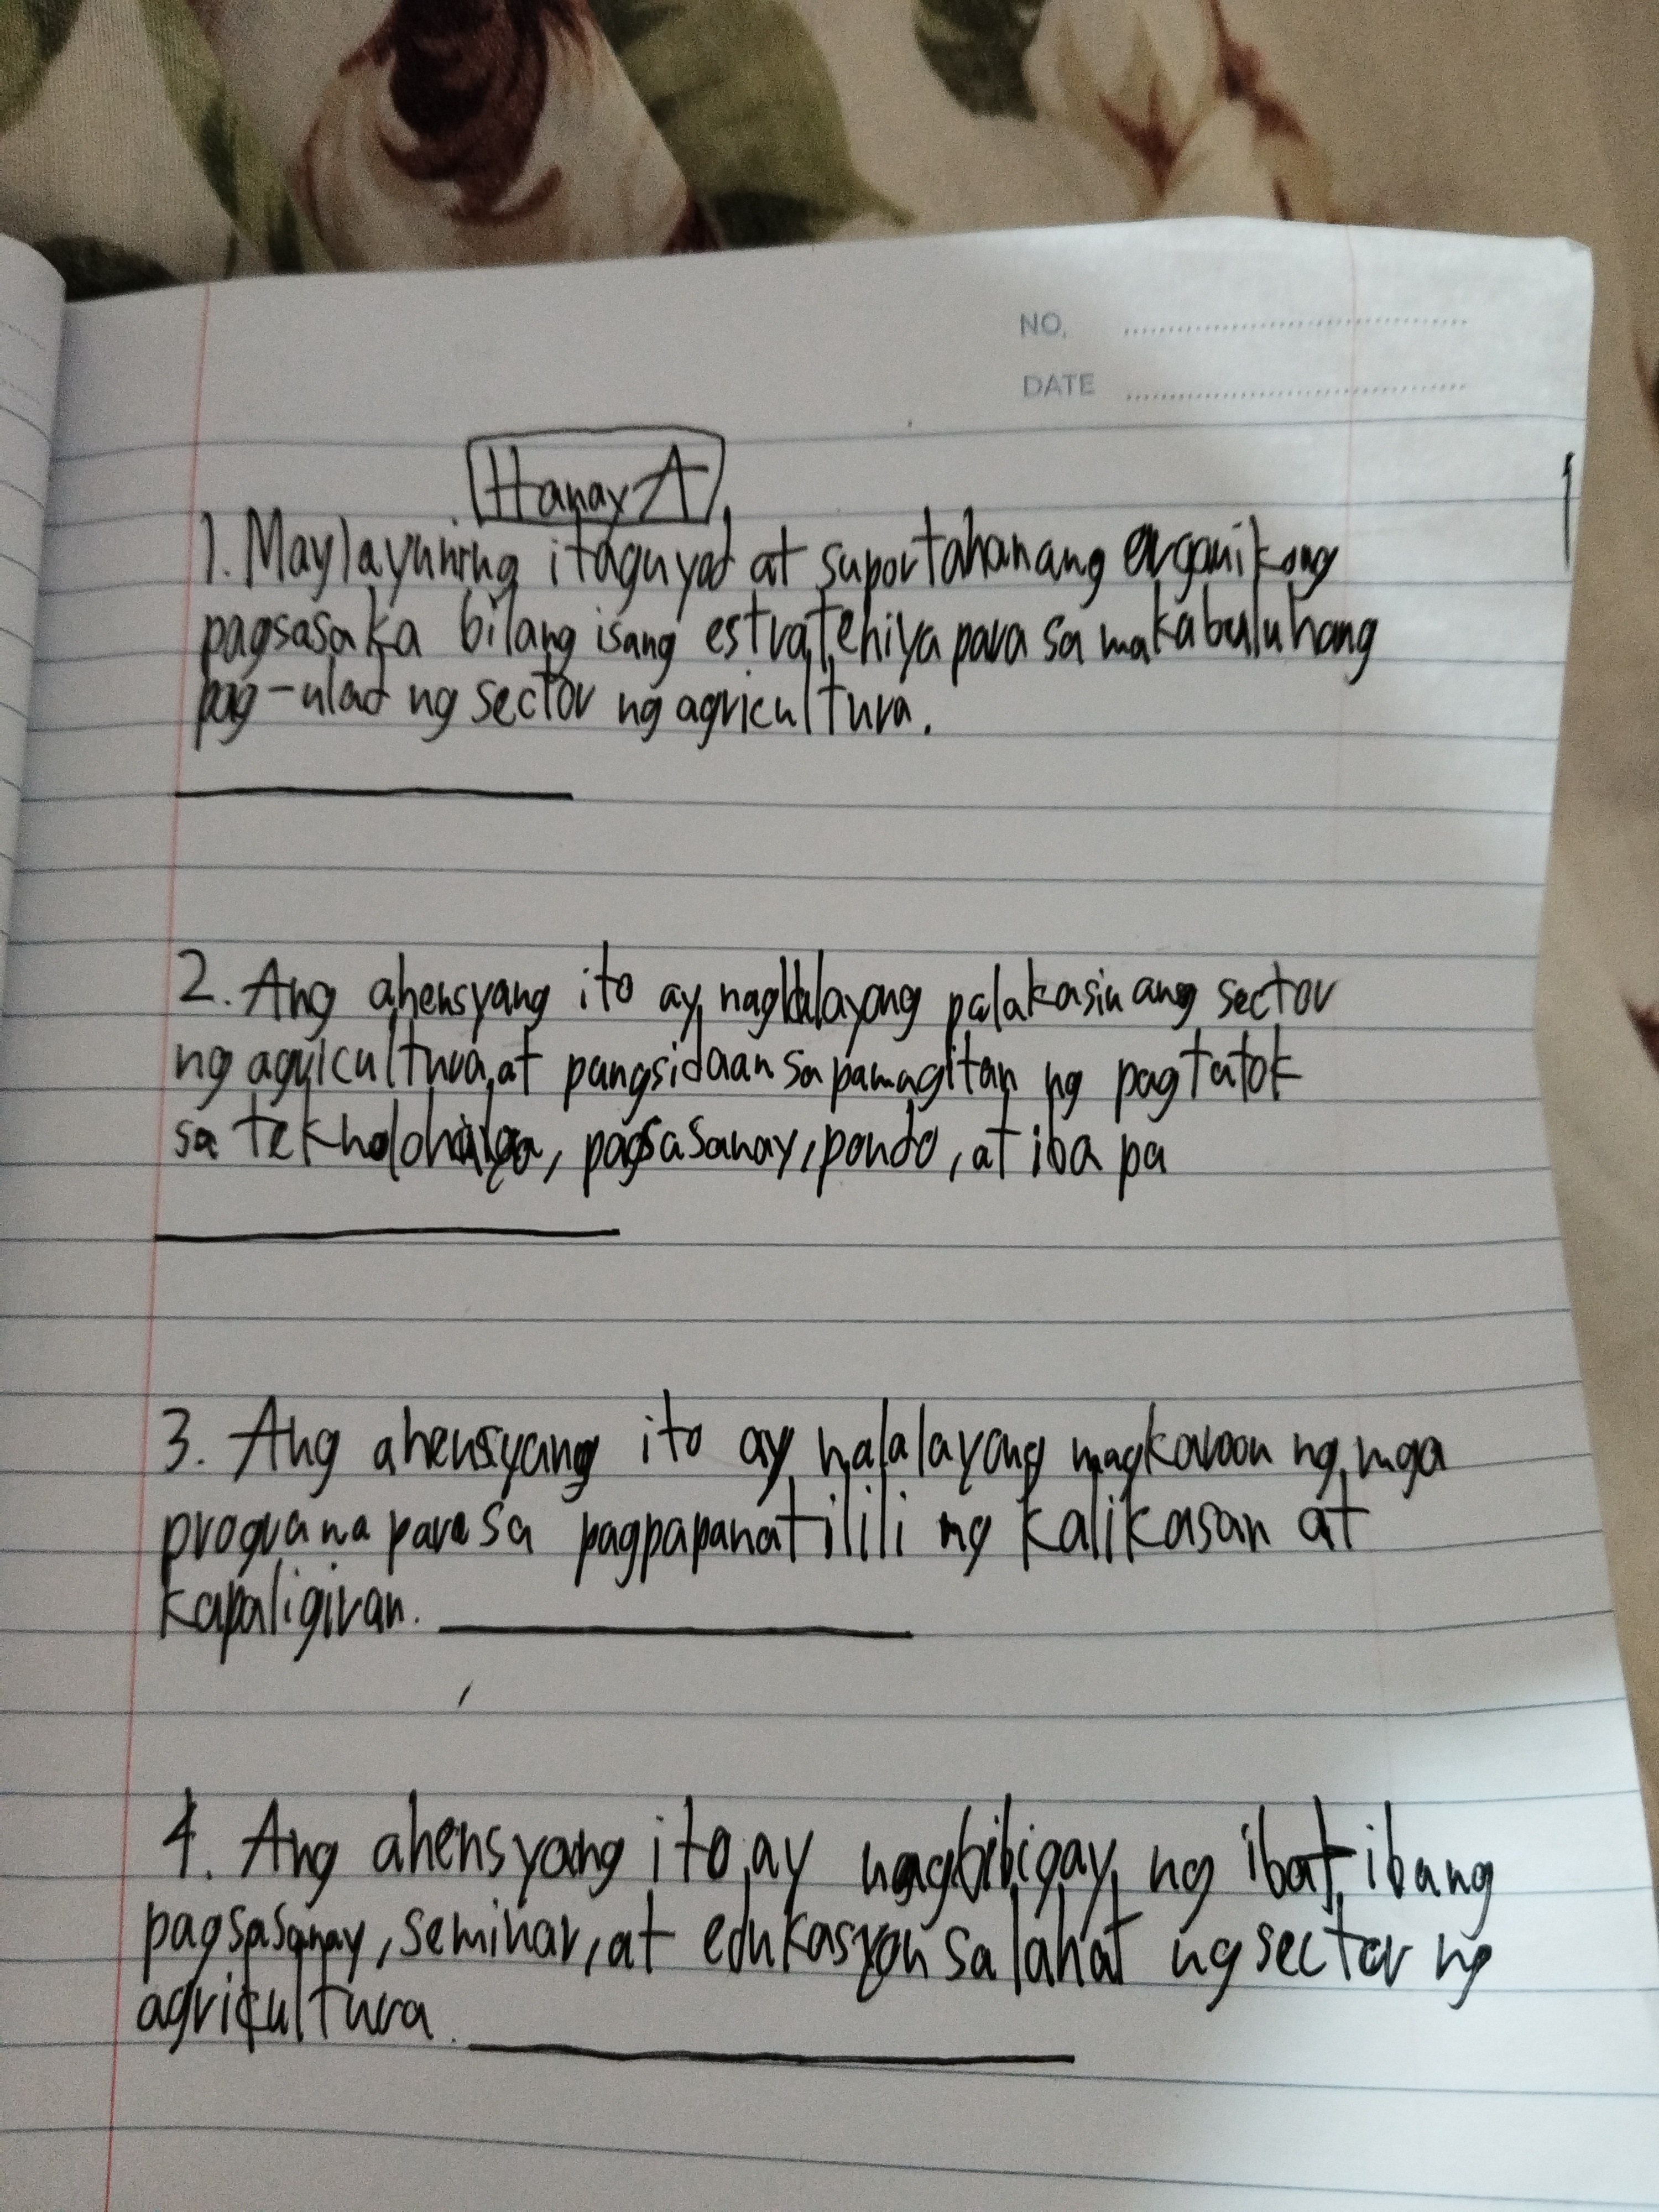 NO.
DATE
Hanay A
1. May layuning itaguyod at suportahan ang organikong
pagsasaka bilang isang estratehiya para sa makabuluhang
pag-ulad ng sector ng agricultura.
2. Ang ahensyang ito ay naglalayong palakasin ang sector
ng agricultura, at pangsidaan sa pamagitan ng pagtatok
sa teknolohiya, pagsasanay, pondo, at iba pa
3. Ang ahensyang ito ay nalalayong magkaroon ng mga
programa para sa pagpapanatilili ng kalikasan at
kapaligiran.
4. Ang ahensyang ito ay nagbibigay ng ibat ibang
pagsasanay, seminar, at edukasyon sa lahat ng sector ng
agricultura.